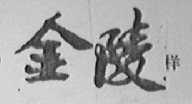 金陵
样